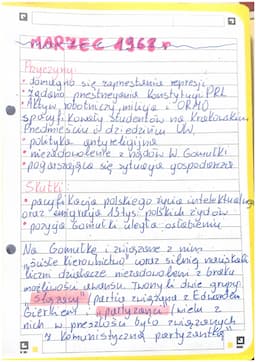 MARZEC 1968 r
Przyczyny:
• domagano się zaprzestania represji
• żądano przestrzegania Konstytucji PRL
• Aktyw robotniczy, milicja i ORMO
spacyfikowały studentów na Krakowskim
Przedmieściu i dziedzińcu UW
• polityka antyreligijna
• niezadowolenie z rządów W. Gomułki
• pogarszająca się sytuacja gospodarcza
Skutki:
• pacyfikacja polskiego życia intelektualnego
oraz emigracja 15 tys. polskich Żydów
• pozycja Gomułki uległa osłabieniu
Na Gomułkę i związane z nim
"ścisłe kierownictwo" oraz silniej naciskali
liczni działacze niezadowoleni z braku
możliwości awansu. Tworzyli dwie grupy:
"Ślązacy" (partia związana z Edwardem
Gierkiem), "partyzanci" (wielu z
nich w przeszłości było związanych
z komunistyczną partyzantką)